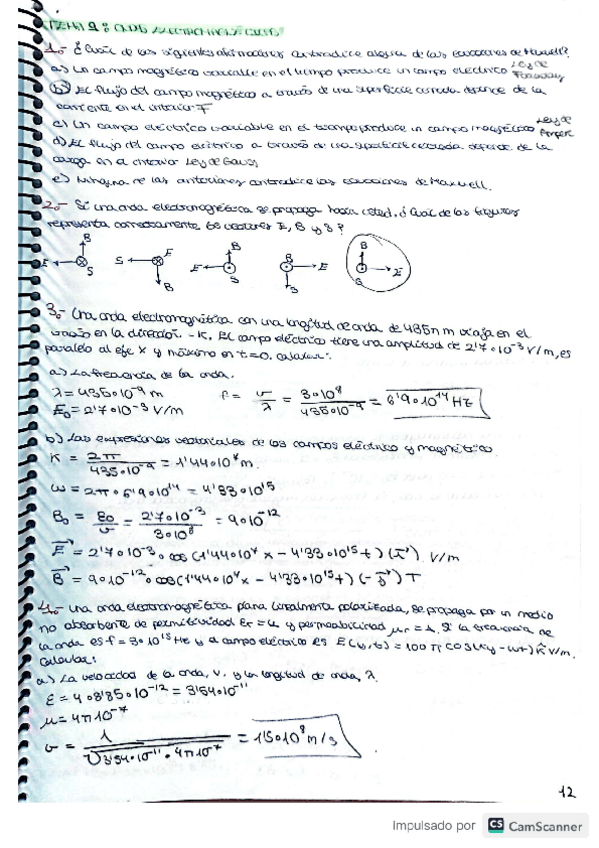 TEMA 9: ONDAS ELECTROMAGNÉTICAS
1.- ¿Cuál de las siguientes afirmaciones contradice alguna de las ecuaciones de Maxwell?
a) Un campo magnético variable en el tiempo produce un campo eléctrico Ley de Faraday
b) El flujo del campo magnético a través de una superficie cerrada depende de la
corriente en el interior F
c) Un campo eléctrico variable en el tiempo produce un campo magnético Ley de Ampere
d) El flujo del campo eléctrico a través de una superficie cerrada depende de la
carga en el interior Ley de Gauss
e) Ninguna de las anteriores contradice las ecuaciones de Maxwell.
2.- Si una onda electromagnética se propaga hacia usted, ¿Cuál de las figuras
representa correctamente los vectores E, B y S?
B E B B
E S S E E E
S B S S S
3.- Una onda electromagnética con una longitud de onda de 435 nm viaja en el
vacío en la dirección -K. El campo eléctrico tiene una amplitud de 2'7·10⁻³ V/m, es
paralelo al eje x y máximo en t=0. Calcular:
a) La frecuencia de la onda.
λ = 435·10⁻⁹ m f = v/λ = 3·10⁸/435·10⁻⁹ = 6'9·10¹⁴ Hz
E₀ = 2'7·10⁻³ V/m
b) Las expresiones vectoriales de los campos eléctrico y magnético.
K = 2π/435·10⁻⁹ = 1'44·10⁷ m.
ω = 2π·6'9·10¹⁴ = 4'33·10¹⁵
B₀ = E₀/v = 2'7·10⁻³/3·10⁸ = 9·10⁻¹²
E = 2'7·10⁻³·cos(1'44·10⁷x - 4'33·10¹⁵t)(i) V/m
B = 9·10⁻¹²·cos(1'44·10⁷x - 4'33·10¹⁵t)(-j) T
4.- Una onda electromagnética plana linealmente polarizada, se propaga por un medio
no absorbente de permitividad εr = 4 y permeabilidad μr = 1. Si la frecuencia de
la onda es f = 3·10¹⁵ Hz y el campo eléctrico es E(y,t) = 100π cos(ky-ωt) k V/m.
Calcular:
a) La velocidad de la onda, v, y la longitud de onda, λ.
ε = 4·8'85·10⁻¹² = 3'54·10⁻¹¹
μ = 4π10⁻⁷
v = 1/√3'54·10⁻¹¹·4π10⁻⁷ = 1'5·10⁸ m/s
12
Impulsado por CS CamScanner